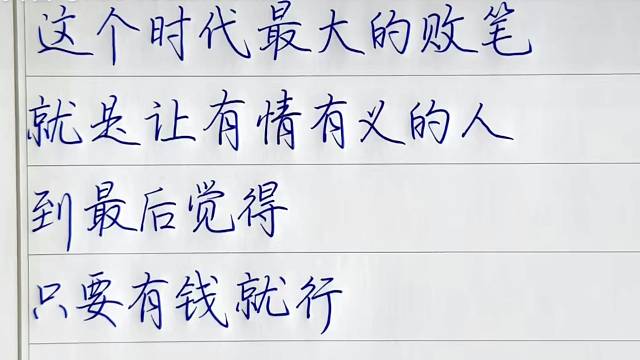 这个时代最大的败笔
就是让有情有义的人
到最后觉得
只要有钱就行